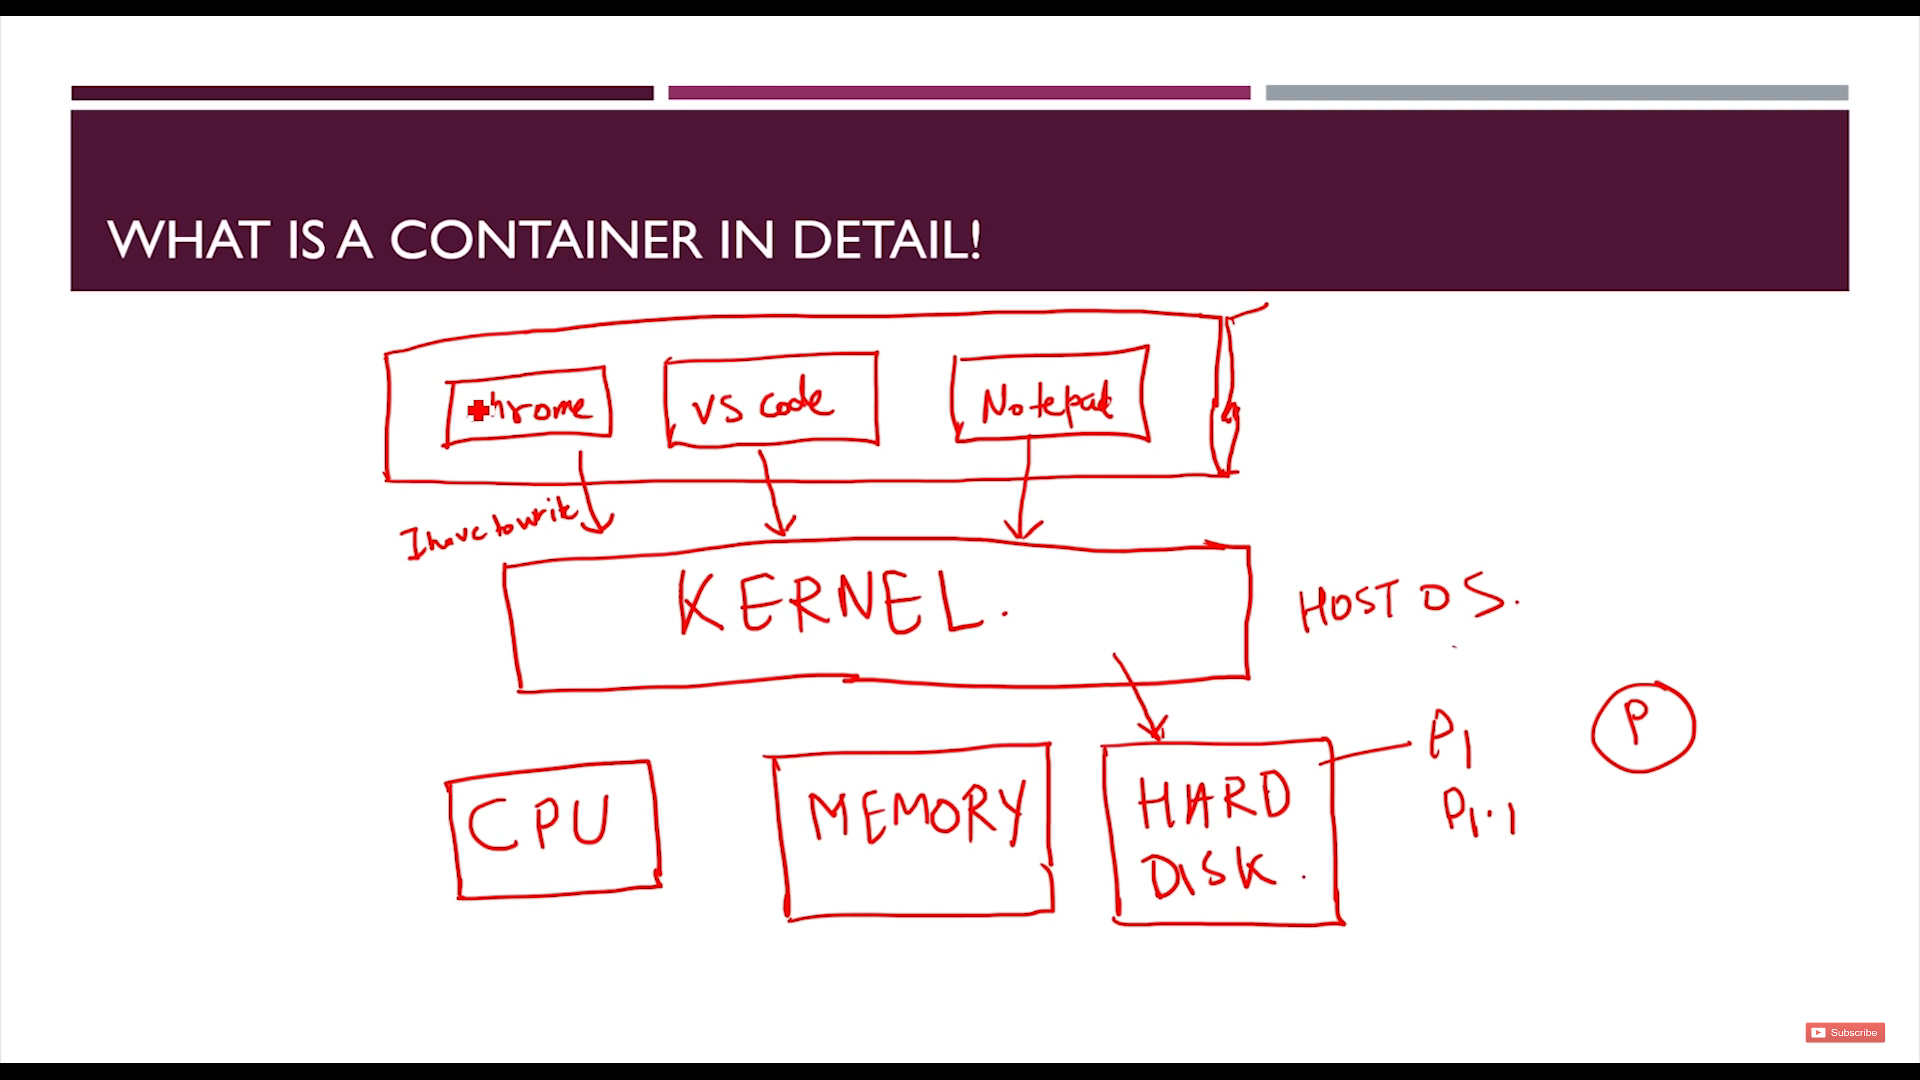 WHAT IS A CONTAINER IN DETAIL!
Chrome
VS Code
Notepad
I have to write
KERNEL.
HOST OS.
P1
P
P1.1
CPU
MEMORY
HARD
DISK.
Subscribe